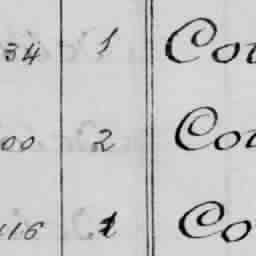 34 1 Cou
00 2 Cou
116 1 Co